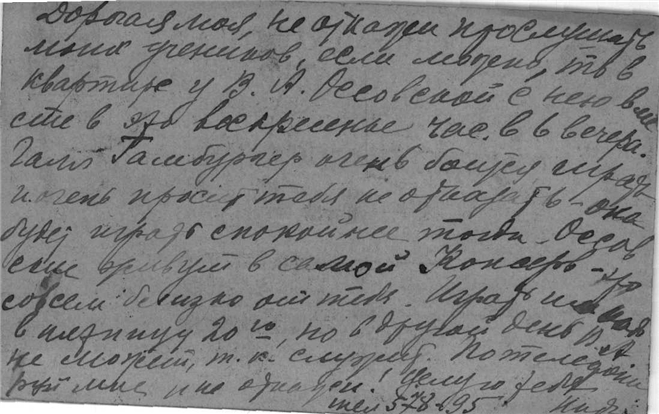 Дорогая моя, не откажи прослушать
моих учеников, если можно, то в
квартире у В. А. Оссовской с нею вме
сте в это воскресенье час. в 6 вечера.
Галя Гамбургер очень боится играть
и очень просит тебя не отказать – она
будет играть спокойнее тогда – Оссов
ские живут в самой Консерв – это
совсем близко от тебя. Играть им надо
в пятницу 20го, но в другой день В. А
не может, т. к. служит. Потелефони
руй мне и не откажи! Целую тебя
тел 578-95